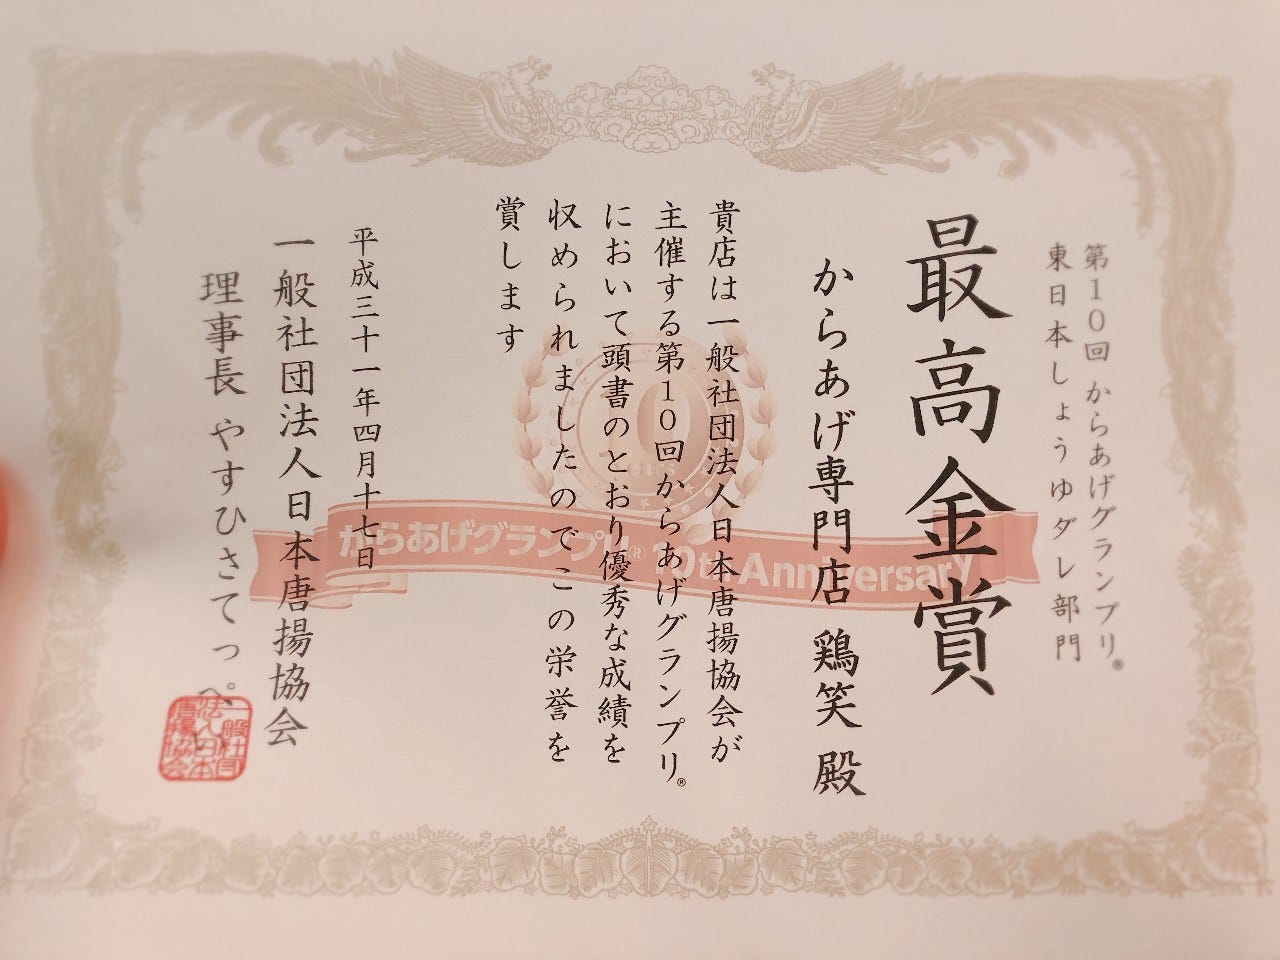 第10回 からあげグランプリ®
東日本しょうゆダレ部門
最高金賞
からあげ専門店 鶏笑 殿
貴店は一般社団法人日本唐揚協会が
主催する第10回からあげグランプリ®
において頭書のとおり優秀な成績を
収められましたのでこの栄誉を
賞します
平成三十一年四月十七日
一般社団法人日本唐揚協会
理事長 やすひさてっぺい
一般社団
法人日本
唐揚協会
10
からあげグランプリ® 10th Anniversary